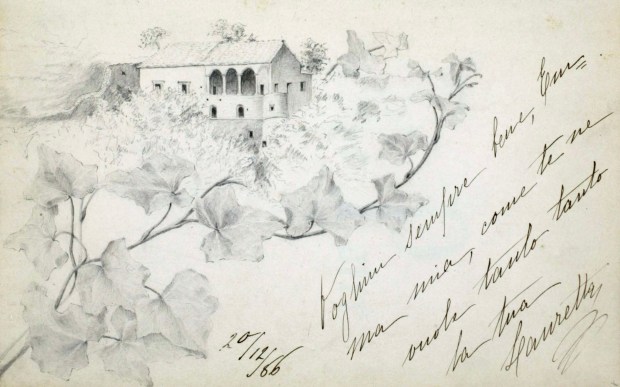 Voglimi sempre bene, Em=
ma mia, come te ne
vuole tanto tanto
la tua
Lauretta
20/12/66